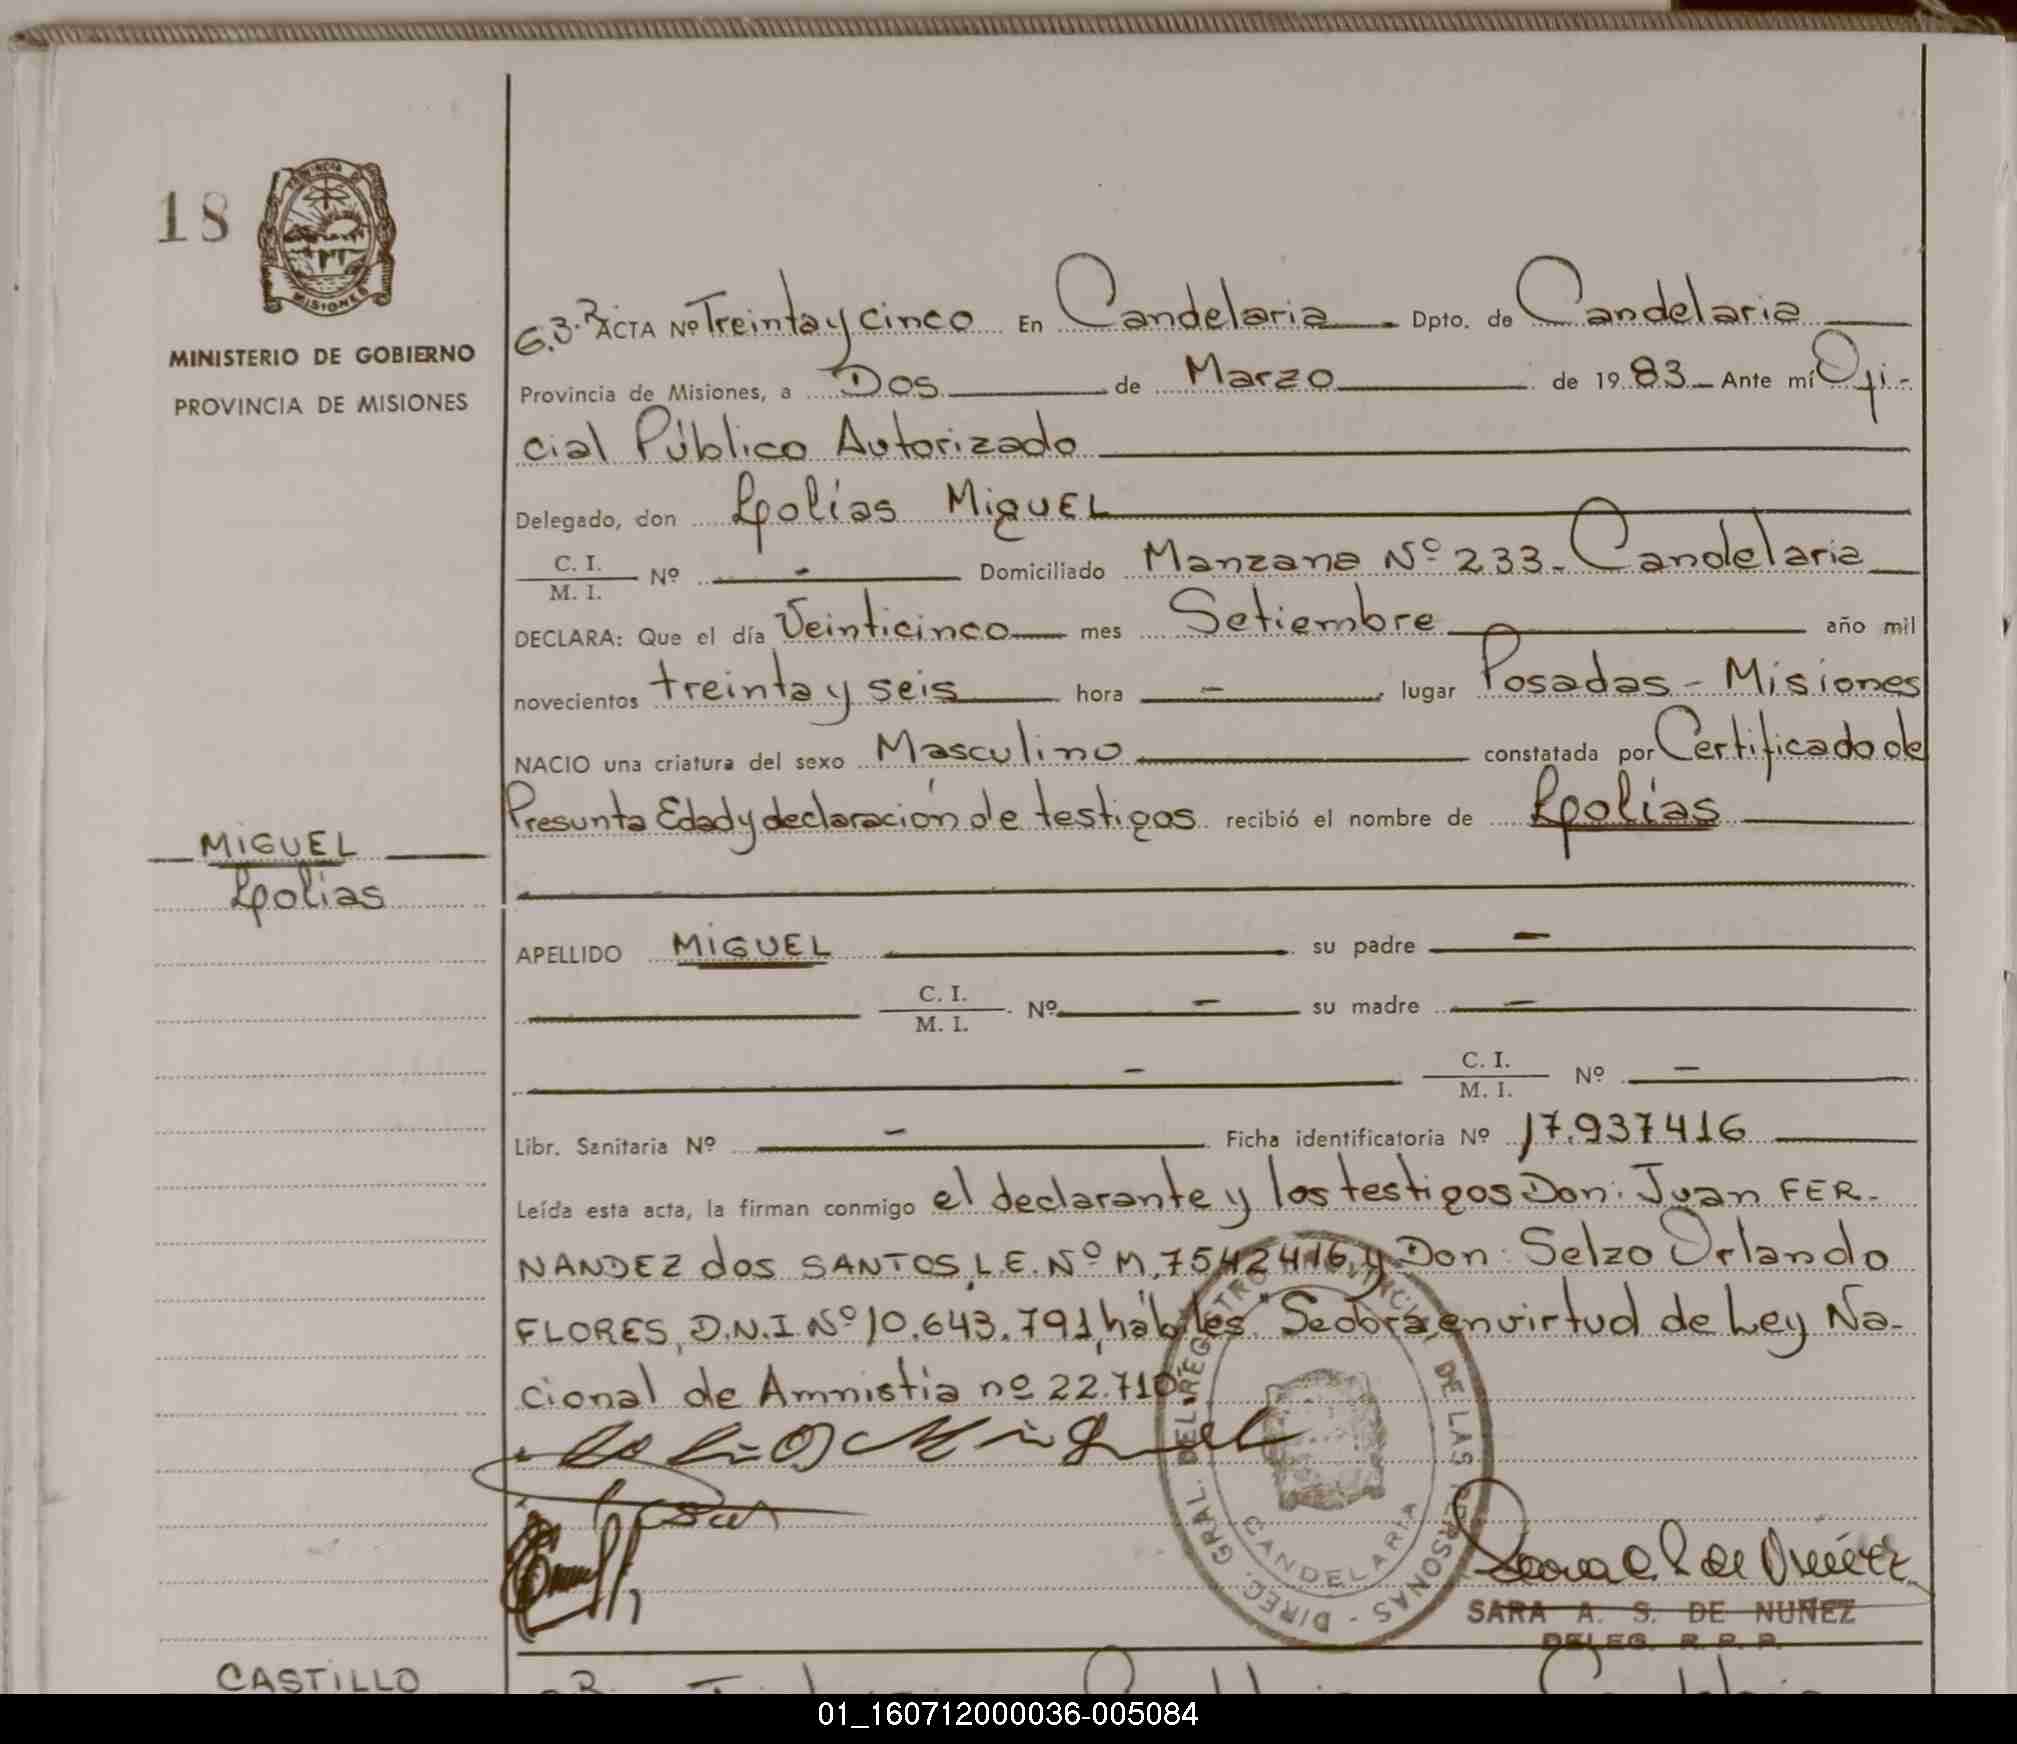 18
PROVINCIA DE
MISIONES
MINISTERIO DE GOBIERNO
PROVINCIA DE MISIONES
ACTA Nº Treinta y cinco En Candelaria Dpto. de Candelaria
Provincia de Misiones, a Dos de Marzo de 19 83 Ante mí Ofi-
cial Público Autorizado
Delegado, don Lpolías Miguel
C. I.
M. I. Nº - Domiciliado Manzana Nº 233 - Candelaria
DECLARA: Que el día Veinticinco mes Setiembre año mil
novecientos treinta y seis hora - lugar Posadas - Misiones
NACIO una criatura del sexo Masculino constatada por Certificado de
Presunta Edad y declaración de testigos recibió el nombre de Lpolías
MIGUEL
Lpolías
APELLIDO MIGUEL su padre -
C. I.
M. I. Nº - su madre -
- C. I.
M. I. Nº -
Libr. Sanitaria Nº - Ficha identificatoria Nº 17.937416
Leída esta acta, la firman conmigo el declarante y los testigos Don: Juan FER-
NANDEZ dos SANTOS, L.E. Nº M. 7542416, y Don: Selzo Orlando
FLORES, D.N.I Nº 10.643.791, hábiles. Se obra en virtud de Ley Na-
cional de Amnistía nº 22.710.
Miguel
DIREC. GRAL. DEL REGISTRO PROVINCIAL DE LAS PERSONAS -
CANDELARIA
SARA A. S. DE NUÑEZ
DELEG. R. P. P.
CASTILLO
01_160712000036-005084